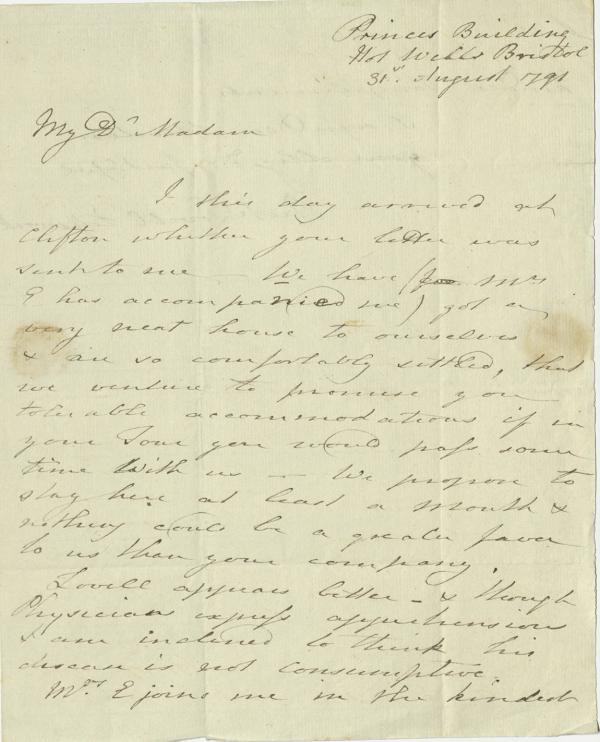 Princes Building
Hot Wells Bristol
31st. August 1791
My Dr Madam
I this day arrived at
Clifton whither your letter was
sent to me We have (for Mrs
E has accompanied me) got a
very neat house to ourselves
& are so comfortably settled, that
we venture to promise you
tolerable accommodations if in
your Tour you would pass some
time with us — We propose to
stay here at least a month &
nothing could be a greater favor
to us than your company.
Lovell appears better — & though
Physicians express apprehensions
I am inclined to think his
disease is not consumptive.
Mrs. E joins me in the kindest